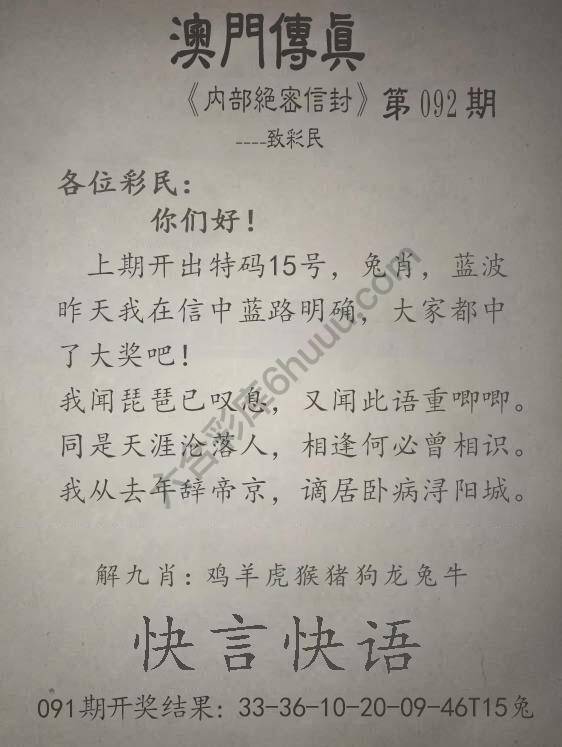 澳門傳真
《内部絕密信封》第092期
----致彩民
各位彩民：
你们好！
上期开出特码15号，兔肖，蓝波
昨天我在信中蓝路明确，大家都中
了大奖吧！
我闻琵琶已叹息，又闻此语重唧唧。
同是天涯沦落人，相逢何必曾相识。
我从去年辞帝京，谪居卧病浔阳城。
六合彩库6huuu.com
解九肖：鸡羊虎猴猪狗龙兔牛
快言快语
091期开奖结果：33-36-10-20-09-46T15兔